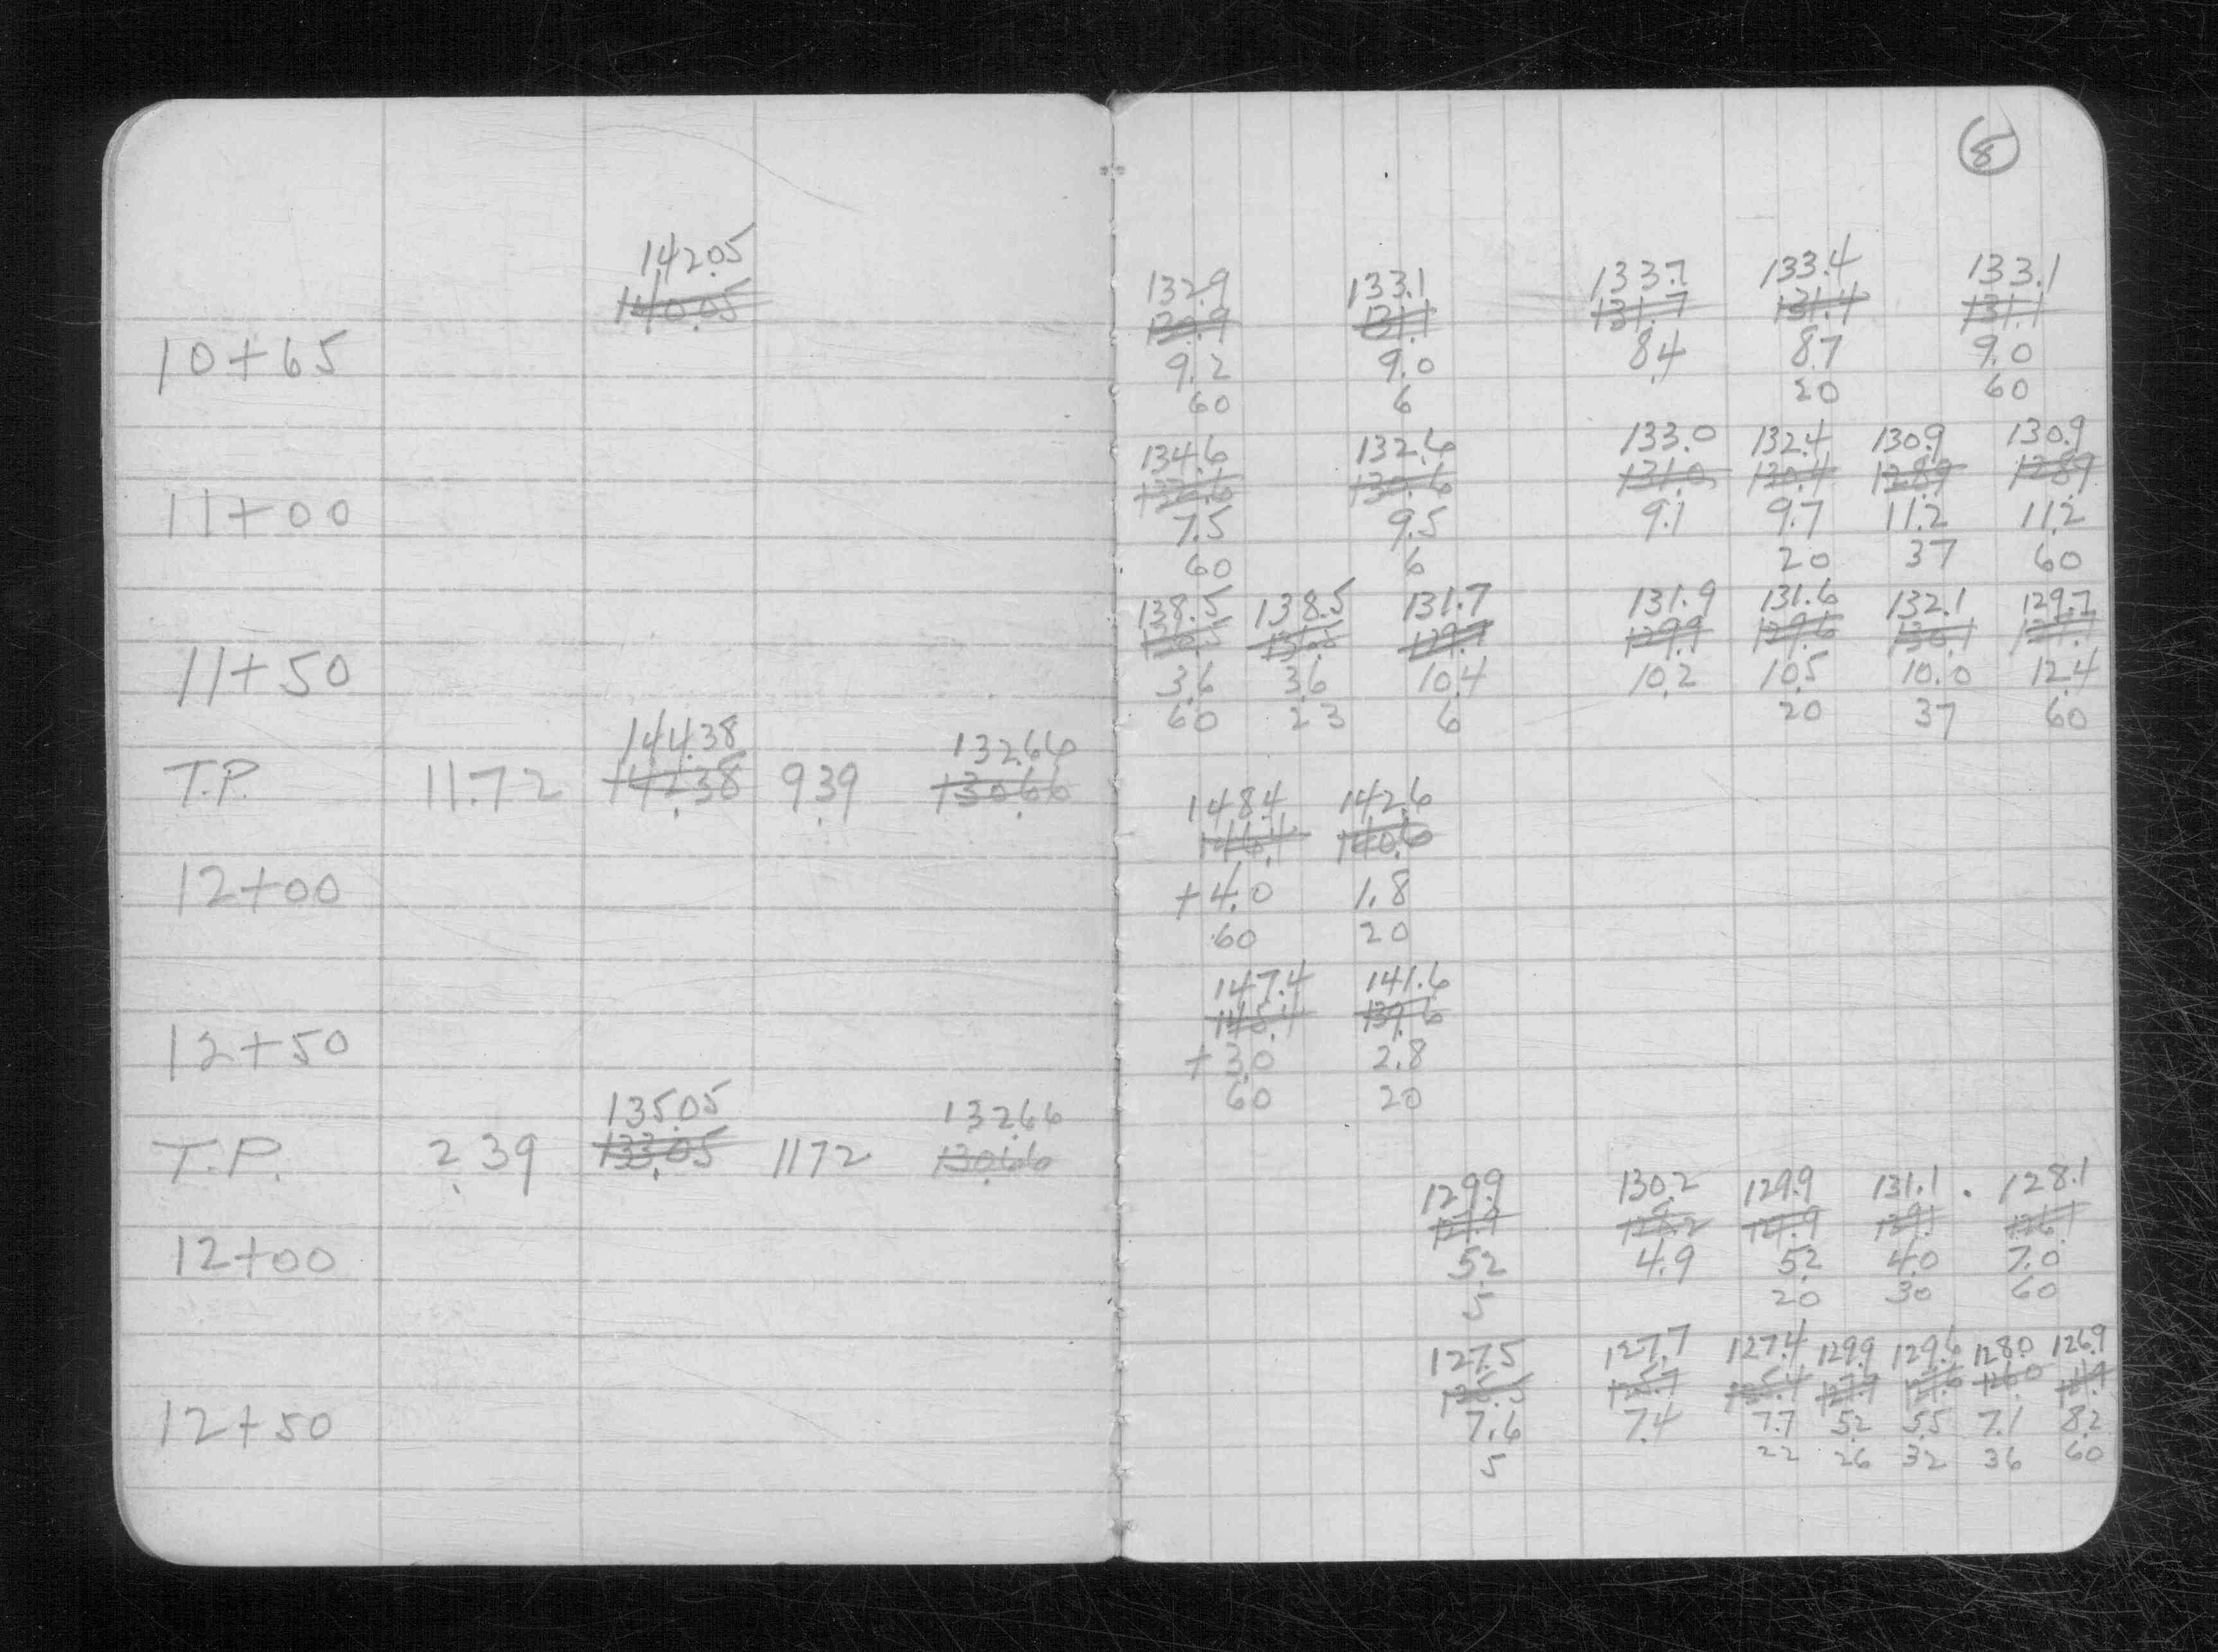 8
142.05
140.05
132.9 133.1 133.7 133.4 133.1
130.9 131.1 131.7 131.4 131.1
10+65 9.2 9.0 8.4 8.7 9.0
60 6 20 60
134.6 132.6 133.0 132.4 130.9 130.9
132.6 130.6 131.0 130.4 128.9 128.9
11+00 7.5 9.5 9.1 9.7 11.2 11.2
60 6 20 37 60
138.5 138.5 131.7 131.9 131.6 132.1 129.7
136.5 136.5 129.7 129.9 129.6 130.1 127.7
11+50 3.6 3.6 10.4 10.2 10.5 10.0 12.4
60 23 6 20 37 60
144.38 132.66
T.P. 11.72 142.38 9.39 130.66
148.4 142.6
146.4 140.6
12+00 +4.0 1.8
60 20
147.4 141.6
145.4 139.6
12+50 +3.0 2.8
60 20
135.05 132.66
T.P. 2.39 133.05 1172 130.66
129.9 130.2 129.9 131.1 128.1
127.9 128.2 127.9 129.1 126.1
12+00 5.2 4.9 5.2 4.0 7.0
5 20 30 60
127.5 127.7 127.4 129.9 129.6 128.0 126.9
125.5 125.7 125.4 127.9 127.6 126.0 124.9
12+50 7.6 7.4 7.7 5.2 5.5 7.1 8.2
5 22 26 32 36 60